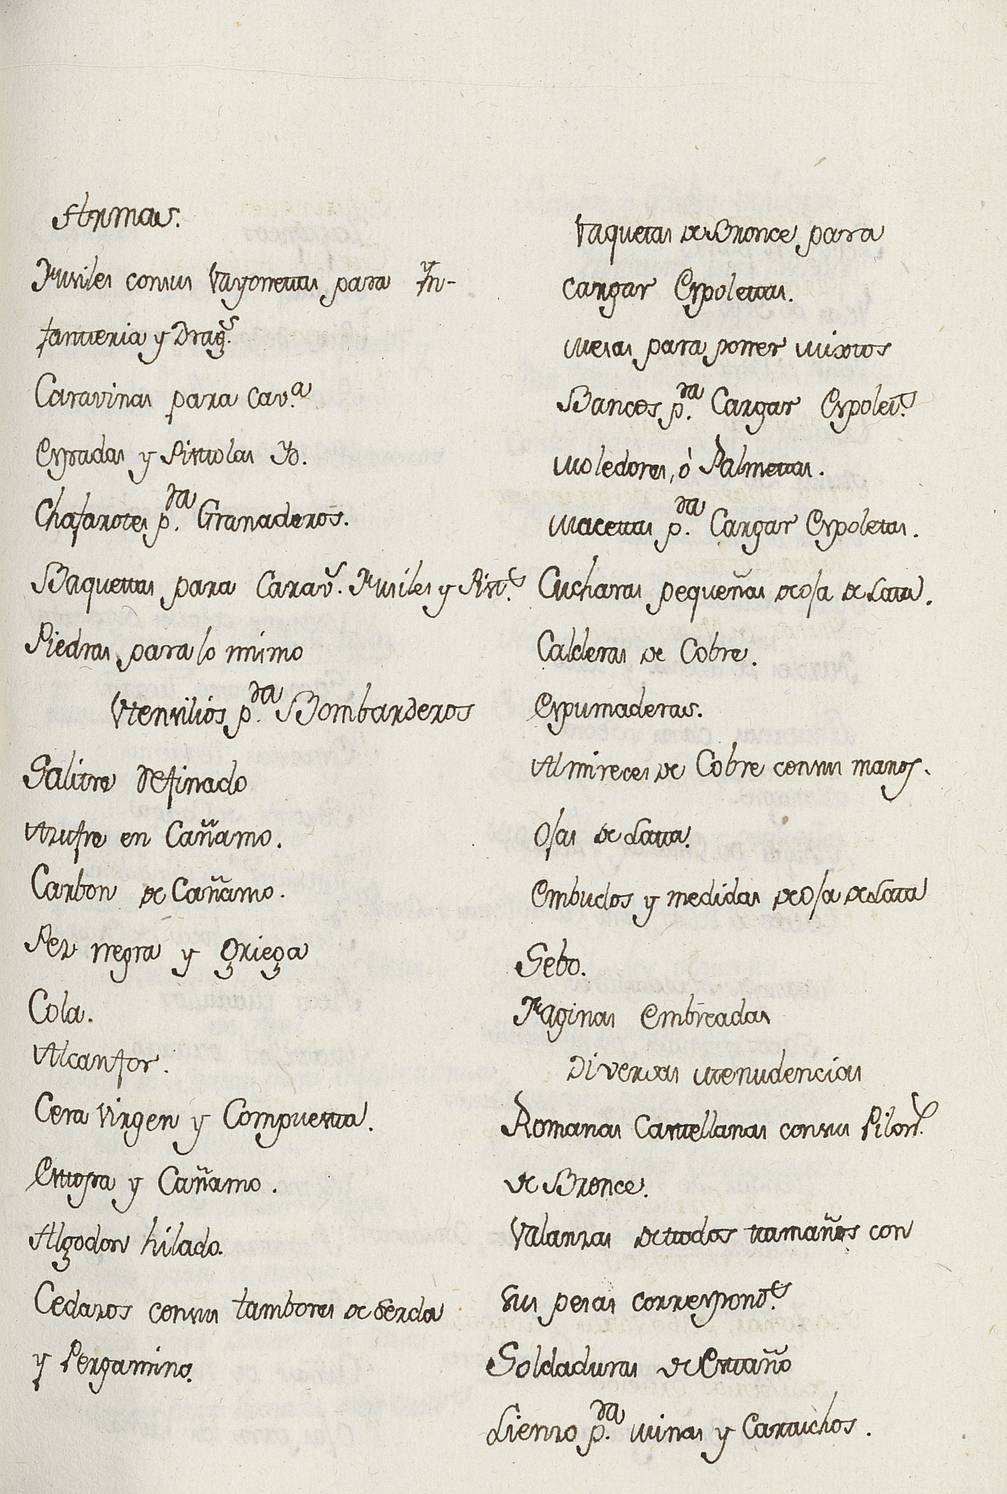 Armas.
Fusiles consus Vayonettas para Yn-
fanteria y Drag.s
Caravinas para Cav.a
Espadas y Pistolas Yd.
Chafarotes p.ra Granaderos.
Baquettas para Carav.s Fusiles y Pist.s
Piedras para lo mismo
Utensilios p.ra Bombarderos
Salitre Refinado
Azufre en Cañamo.
Carbon de Cañamo.
Pez negra y griega
Cola.
Alcanfor.
Cera Virgen y Compuesta.
Estopa y Cañamo.
Algodon hilado.
Cedazos consus tambores de Serda
y Pergamino.
Vaquetas de Bronce para
cargar Espolettas.
Mesas para poner mixtos
Bancos p.ra Cargar Espolet.s
Moledores, ó Palmetas.
Macettas p.ra Cargar Espoletas.
Cucharas pequeñas de oja de Lata.
Calderas de Cobre.
Espumaderas.
Almireces de Cobre consus manos.
Ojas de Latta.
Embudos y medidas de oja de Lata
Sebo.
Faginas Embreadas
Diversas
Romanas Castellanas consus Pilon.s
de Bronce.
Valanzas de todos tamaños con
sus pesas correspond.es
Soldaduras de Estaño
Lienzo p.ra Minas y Cartuchos.